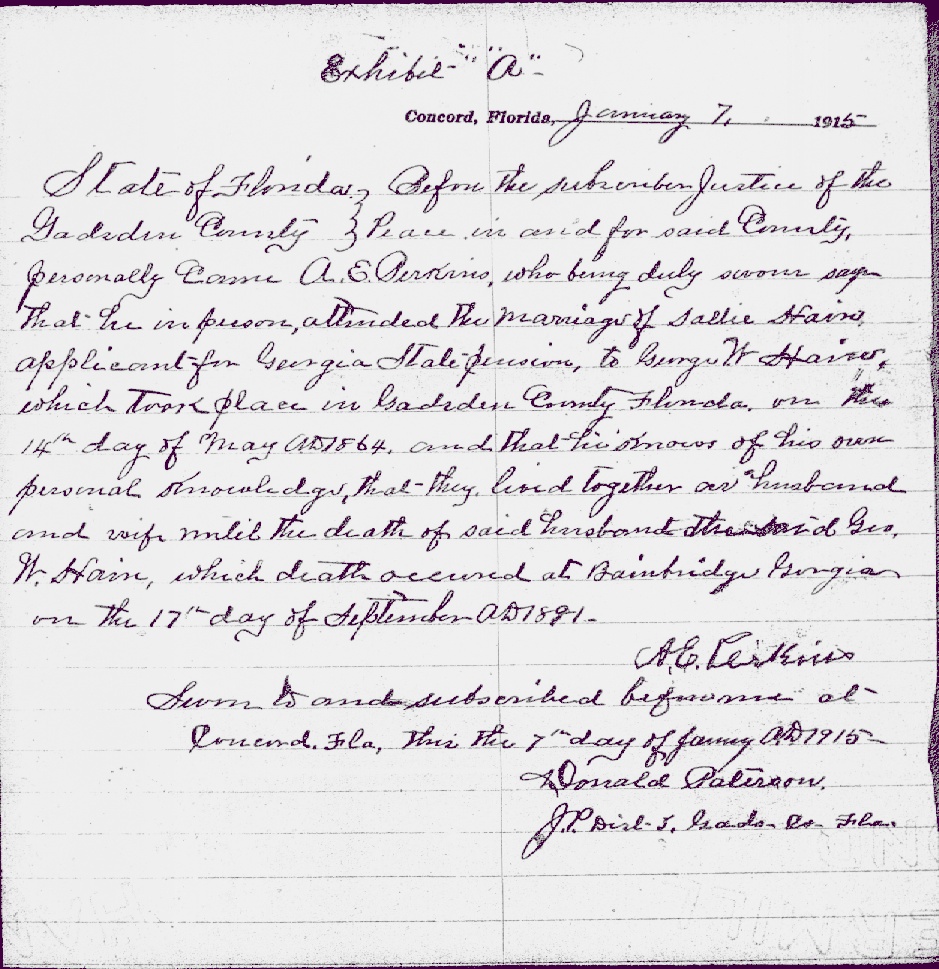 Exhibit "A"
Concord, Florida, January 7, 1915
State of Florida } Before the subscriber Justice of the
Gadsden County } Peace in and for said County,
personally came A. E. Perkins, who being duly sworn says
that he in person, attended the marriage of Sallie Hair,
applicant for Georgia State pension, to George W Hair,
which took place in Gadsden County Florida. on the
14th day of May AD 1864. and that he knows of his own
personal knowledge, that they lived together as husband
and wife until the death of said husband the said Geo.
W. Hair, which death occured at Bainbridge Georgia
on the 17th day of September AD 1891.
A. E. Perkins
Sworn to and subscribed before me at
Concord. Fla, this the 7th day of Jany AD 1915
Donald Paterson.
J.P. Dist. Gads. Co Fla.